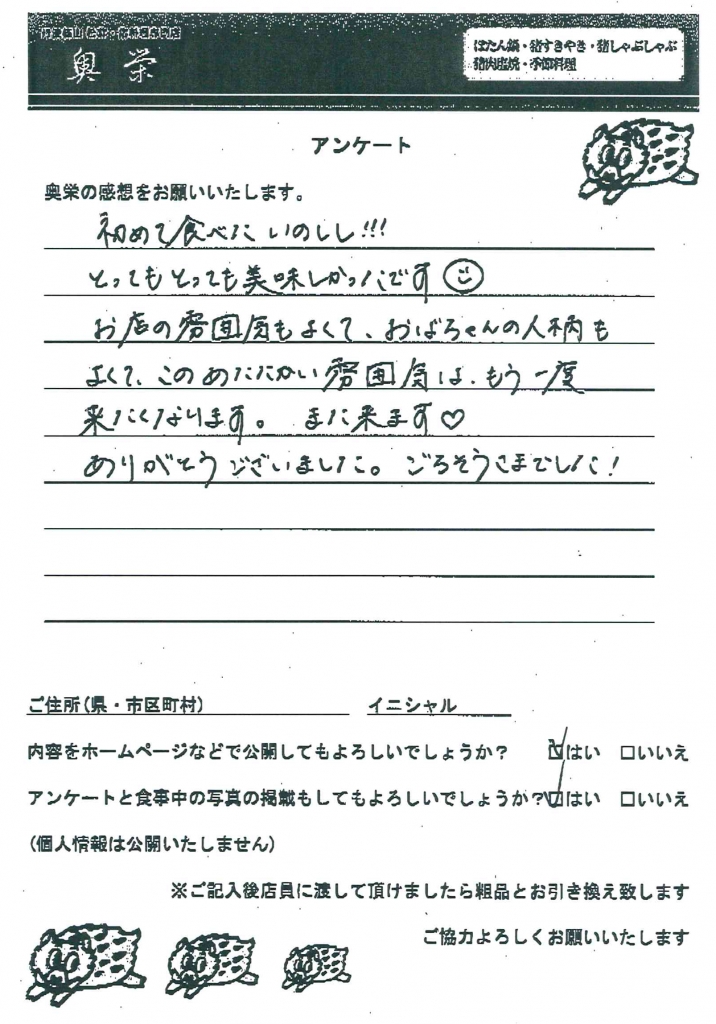 奥栄
ぼたん鍋・猪すきやき・猪しゃぶしゃぶ
猪肉塩焼・季節料理
アンケート
奥栄の感想をお願いいたします。
初めて食べた いのしし!!!
とってもとっても美味しかったです
お店の雰囲気もよくて、おばちゃんの人柄も
よくて、このあたたかい雰囲気は、もう一度
来たくなります。 また来ます♡
ありがとうございました。ごちそうさまでした!
ご住所(県・市区町村)
イニシャル
内容をホームページなどで公開してもよろしいでしょうか? ☑はい □いいえ
アンケートと食事中の写真の掲載もしてもよろしいでしょうか?☑はい □いいえ
(個人情報は公開いたしません)
※ご記入後店員に渡して頂けましたら粗品とお引き換え致します
ご協力よろしくお願いいたします